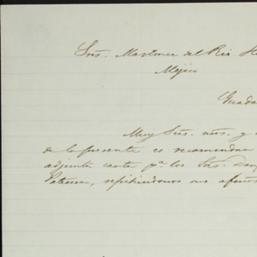 Sres. Martinez del Rio H
Mejico
Guada
Muy Sres. ntros. y a
de la presente es recomendar
adjunta carta pa. los Sres. Dav
, repitiendonos sus afmos